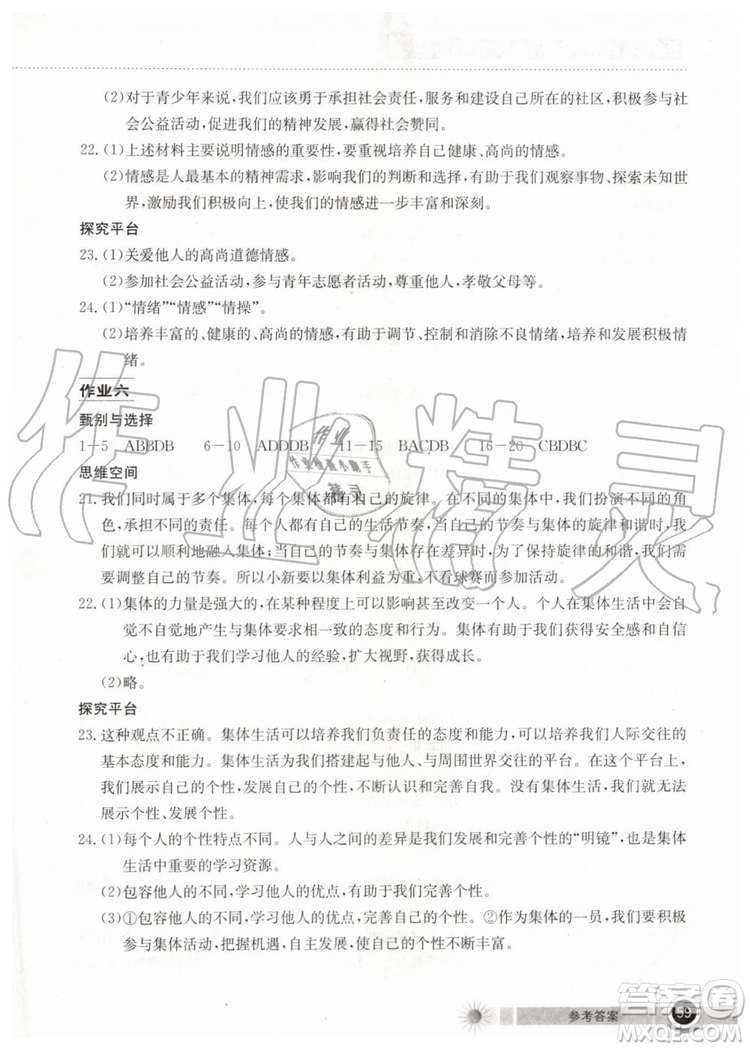 (2)对于青少年来说，我们应该勇于承担社会责任，服务和建设自己所在的社区，积极参与社
会公益活动，促进我们的精神发展，赢得社会赞同。
22. (1)上述材料主要说明情感的重要性，要重视培养自己健康、高尚的情感。
(2)情感是人最基本的精神需求，影响我们的判断和选择，有助于我们观察事物、探索未知世
界，激励我们积极向上，使我们的情感进一步丰富和深刻。
探究平台
23. (1)关爱他人的高尚道德情感。
(2)参加社会公益活动，参与青年志愿者活动，尊重他人，孝敬父母等。
24. (1)“情绪”“情感”“情操”。
(2)培养丰富的、健康的、高尚的情感，有助于调节、控制和消除不良情绪，培养和发展积极情
绪。
作业六
甄别与选择
1－5 ABBDB 6－10 ADDDB 11－15 BACDB 16－20 CBDBC
思维空间
21. 我们同时属于多个集体，每个集体都有自己的旋律。在不同的集体中，我们扮演不同的角
色，承担不同的责任。每个人都有自己的生活节奏，当自己的节奏与集体的旋律和谐时，我
们可以顺利地融入集体；当自己的节奏与集体存在差异时，为了保持旋律的和谐，我们需
要调整自己的节奏。所以小新要以集体利益为重，不看球赛而参加活动。
22. (1)集体的力量是强大的，在某种程度上可以影响甚至改变一个人。个人在集体生活中会自
觉不自觉地产生与集体要求相一致的态度和行为。有助于我们获得安全感和自信
心，也有助于我们学习他人的经验，扩大视野，获得成长。
(2)略。
探究平台
23. 这种观点不正确。集体生活可以培养我们负责任的态度和能力，可以培养我们人际交往的
基本态度和能力。集体生活为我们搭建起与他人、与周围世界交往的平台。在集体中，
我们展示自己的个性，发展自己的个性，不断认识和完善自我。没有集体生活，我们就无法
展示个性、发展个性。
24. (1)每个人的个性特点不同。人与人之间的差异是我们发展和完善个性的“明镜”，是集体
生活中重要的学习资源。
(2)包容他人的不同，学习他人的优点，有助于我们完善个性。
(3)①包容他人的不同，学习他人的优点，完善自己的个性。②作为集体的一员，我们要积极
参与集体活动，把握机遇，自我发展，使自己的个性不断丰富。
参考答案
59
作业精灵
作业
作业检查小助手
精灵
答案圈
MXQE.COM